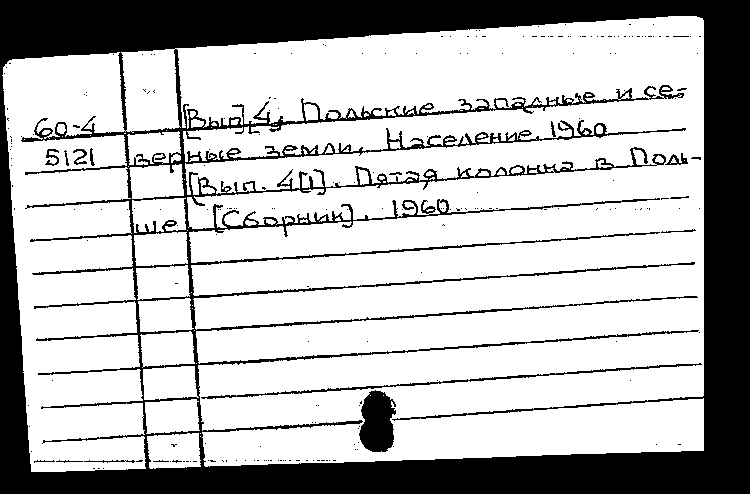 60-4 [Вып]. 4. Польские западные и се-
5121 верные земли. Население. 1960
[Вып. 4[1]. Пятая колонна в Поль-
ше. [Сборник]. 1960.